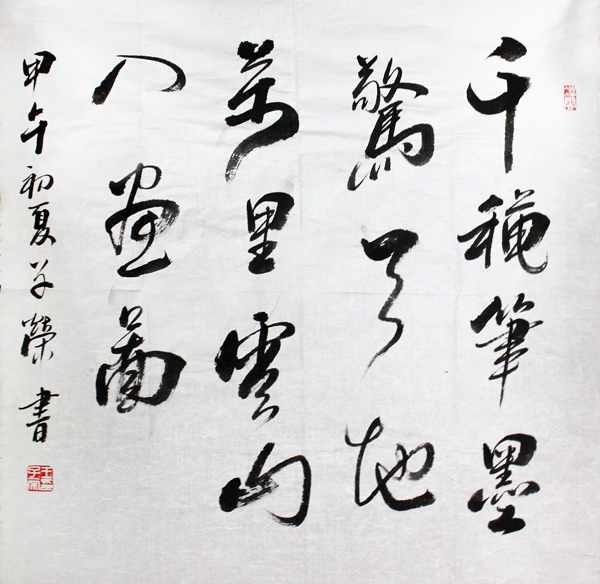 千穐筆墨
驚天地
萬里雲山
入畫圖
甲午初夏子榮書